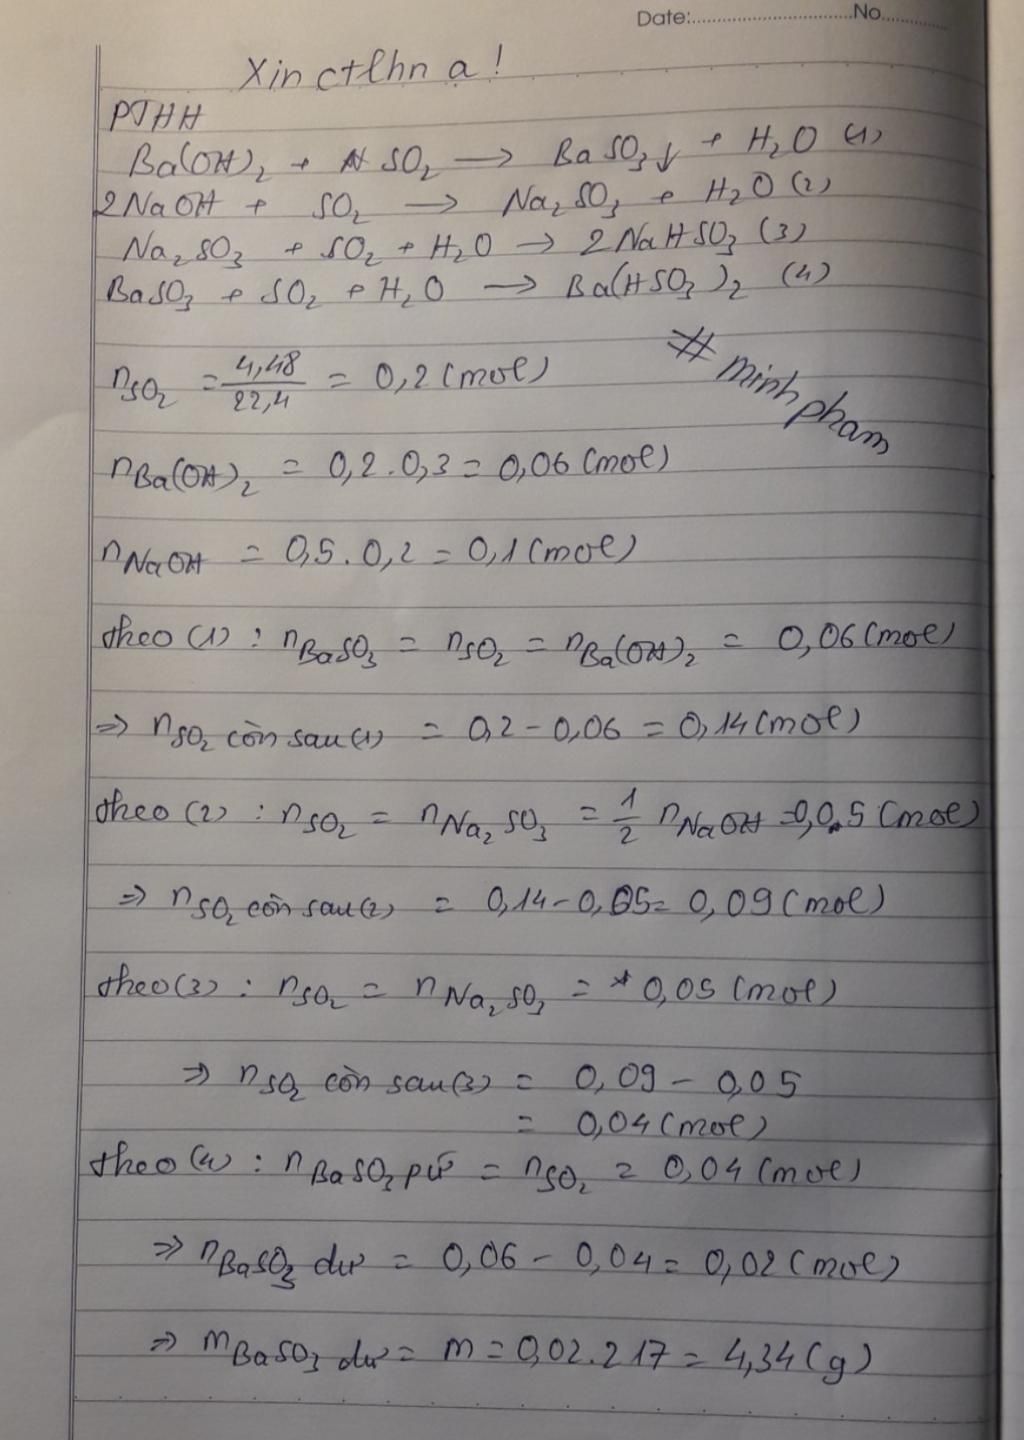 Date:..............................No............
Xin ctlhn ạ!
PTHH
Ba(OH)₂ + SO₂ → BaSO₃↓ + H₂O (1)
2NaOH + SO₂ → Na₂SO₃ + H₂O (2)
Na₂SO₃ + SO₂ + H₂O → 2NaHSO₃ (3)
BaSO₃ + SO₂ + H₂O → Ba(HSO₃)₂ (4)
# minh pham
n SO₂ = 4,48/22,4 = 0,2 (mol)
n Ba(OH)₂ = 0,2 . 0,3 = 0,06 (mol)
n NaOH = 0,5 . 0,2 = 0,1 (mol)
theo (1) : n BaSO₃ = n SO₂ = n Ba(OH)₂ = 0,06 (mol)
⇒ n SO₂ còn sau (1) = 0,2 - 0,06 = 0,14 (mol)
theo (2) : n SO₂ = n Na₂SO₃ = 1/2 n NaOH = 0,0.5 (mol)
⇒ n SO₂ còn sau (2) = 0,14 - 0,05 = 0,09 (mol)
theo (3) : n SO₂ = n Na₂SO₃ = 0,05 (mol)
⇒ n SO₂ còn sau (3) = 0,09 - 0,05
= 0,04 (mol)
theo (4) : n BaSO₃ pứ = n SO₂ = 0,04 (mol)
⇒ n BaSO₃ dư = 0,06 - 0,04 = 0,02 (mol)
⇒ m BaSO₃ dư = m = 0,02 . 217 = 4,34 (g)